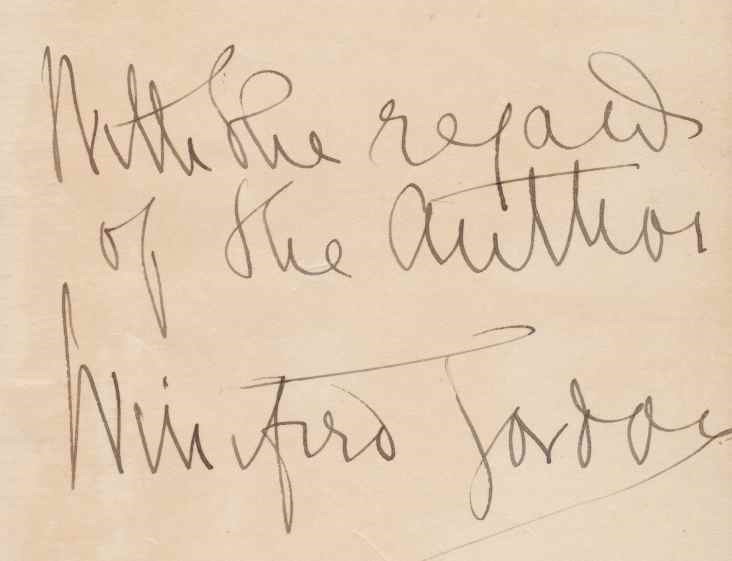 With the regards
of the Author
Winifred Gordon